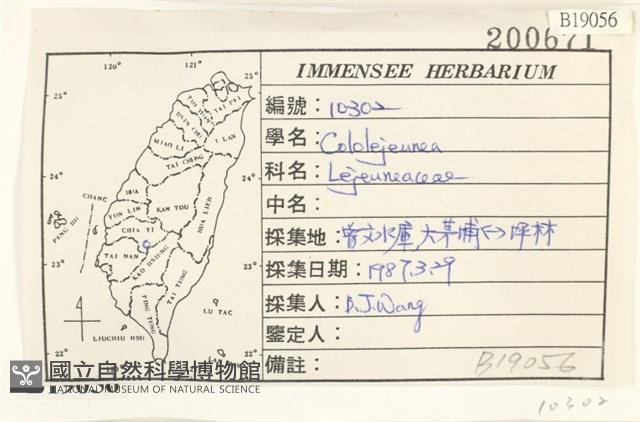 B19056
200671
IMMENSEE HERBARIUM
編號：10302
學名：Cololejeunea
科名：Lejeuneaceae
中名：
採集地：曾文水庫,大茅埔↔坪林
採集日期：1987.3.29
採集人：B.J.Wang
鑒定人：
備註：
B19056
10302
120° 121°
25° 25°
TAI PEI
I LAN
MIAO LI
TAI CHUNG
24° 24°
CHANG HUA
YUN LIN KAN TOU HUA LIEN
PENG HU
CHIA YI
TAI NAN
KAO HSIUNG
TAI TUNG
23° 23°
PING TUNG
LU TAO
LIUCHIU HSU
22° 22°
國立自然科學博物館
NATIONAL MUSEUM OF NATURAL SCIENCE